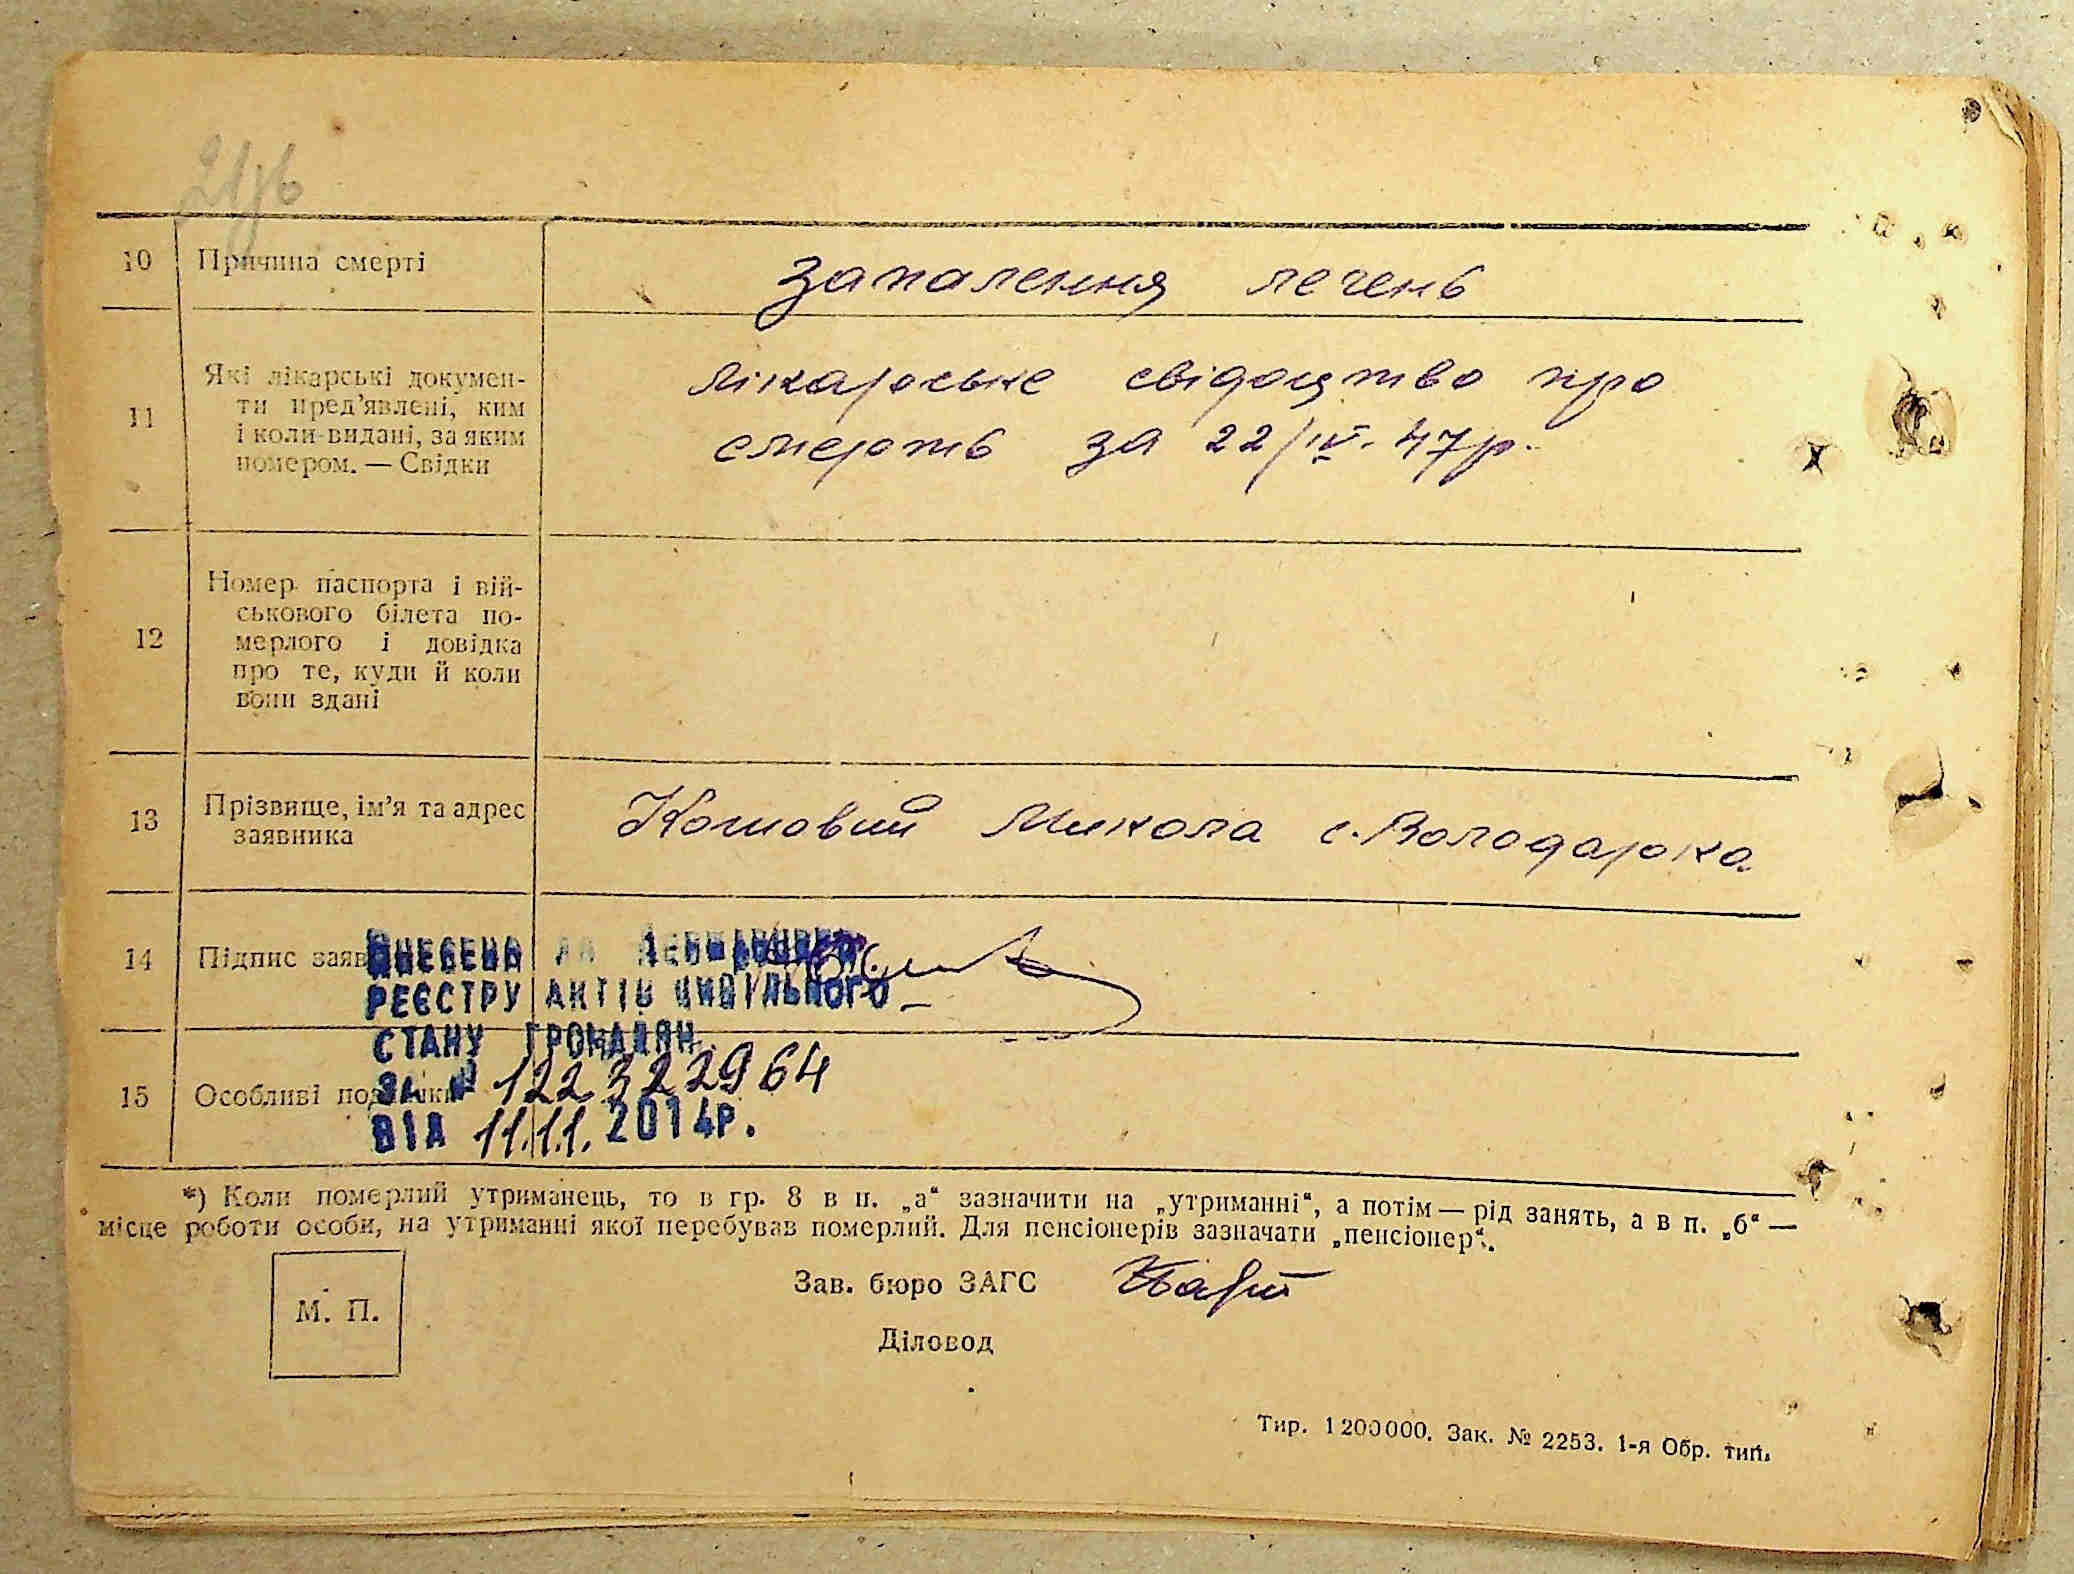 10 Причина смерті запалення печень
11 Які лікарські докумен-
ти пред'явлені, ким
і коли видані, за яким
номером. — Свідки
лікарське свідоцтво про
смерть за 22/IV. 47р.
12 Номер паспорта і вій-
ськового білета по-
мерлого і довідка
про те, куди й коли
вони здані
13 Прізвище, ім'я та адрес
заявника
Кошовий Микола с. Володарка
14 Підпис
ВНЕСЕНО ДО ДЕРЖАВНОГО
РЕЄСТРУ АКТІВ ЦИВІЛЬНОГО
СТАНУ ГРОМАДЯН
ЗА № 12232 2964
15 Особливі
ВІД 11.11. 2014Р.
*) Коли померлий утриманець, то в гр. 8 в п. „а“ зазначити на „утриманні“, а потім — рід занять, а в п. „б“ —
місце роботи особи, на утриманні якої перебував померлий. Для пенсіонерів зазначати „пенсіонер“.
М. П.
Зав. бюро ЗАГС
Діловод
Тир. 1200000. Зак. № 2253. 1-я Обр. тип.